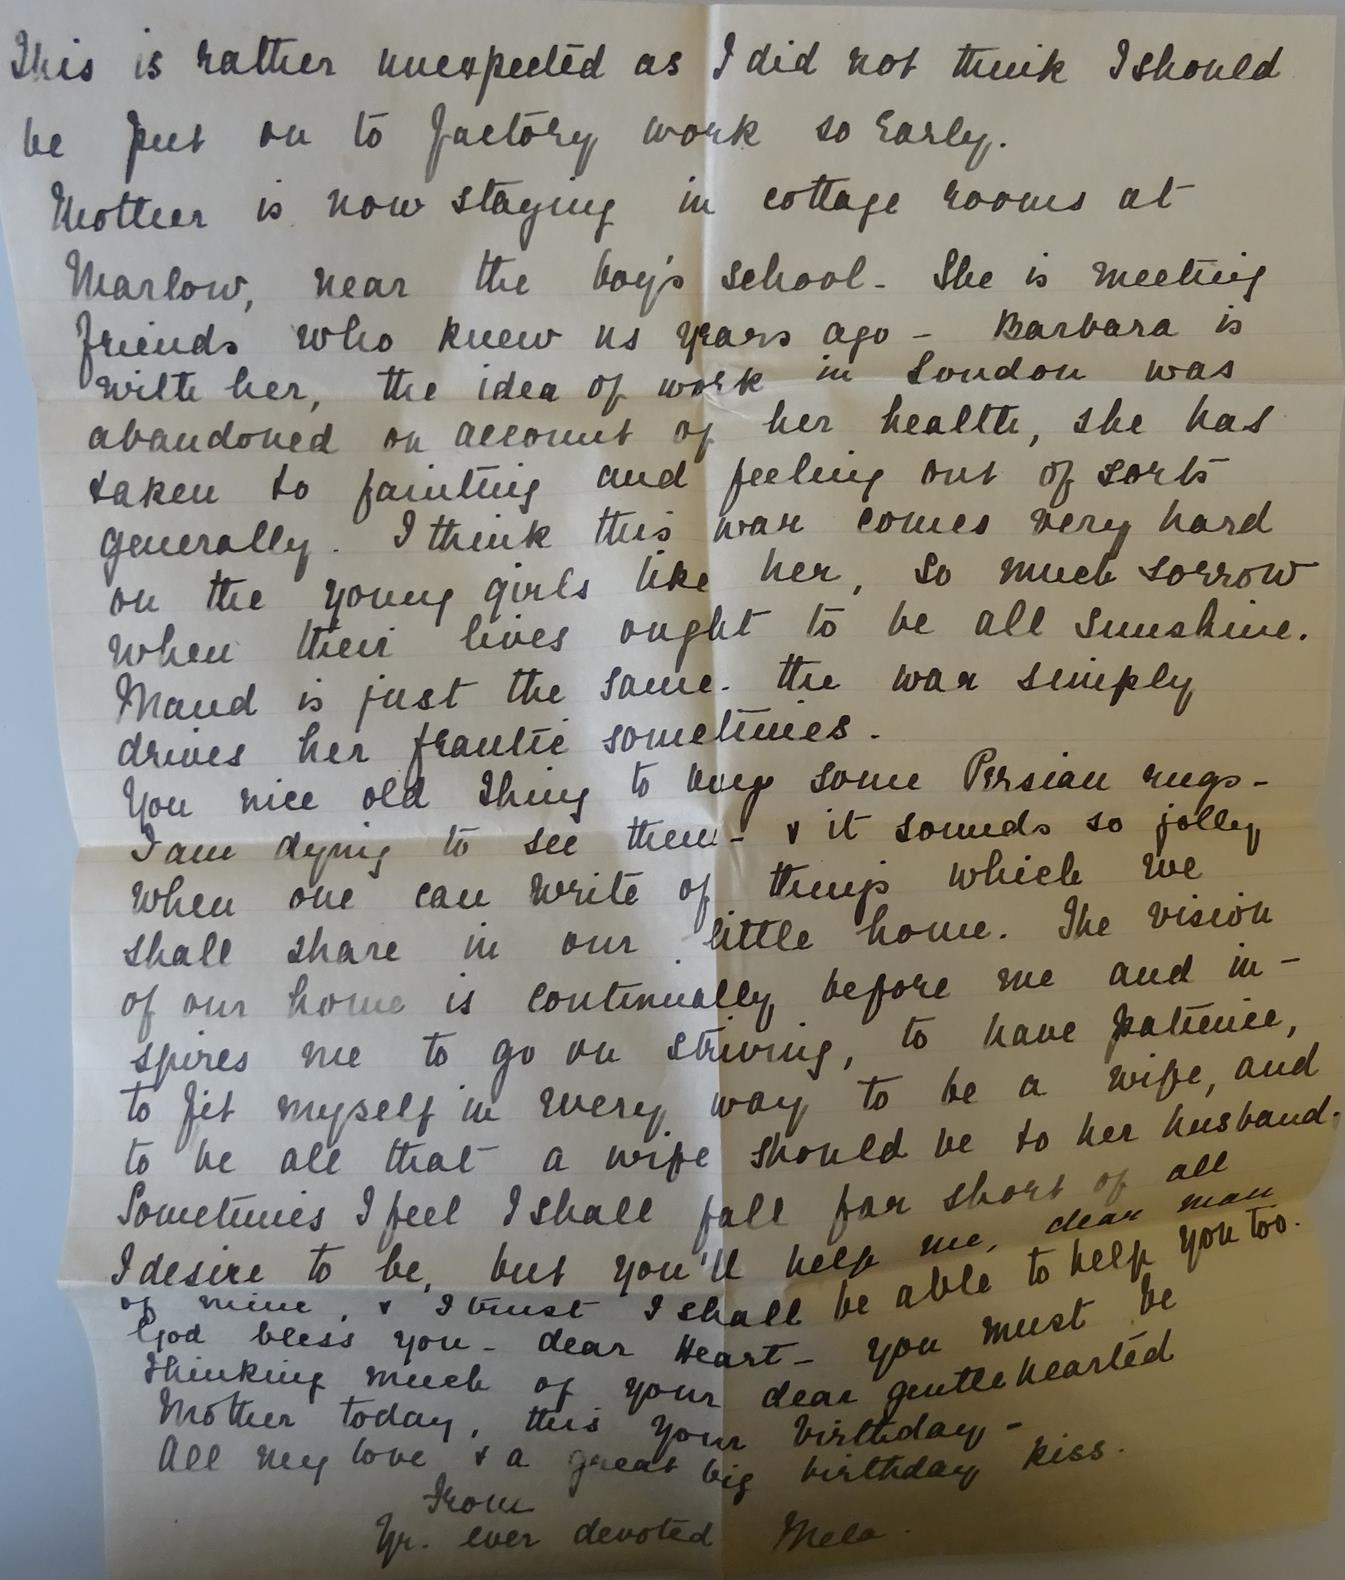 This is rather unexpected as I did not think I should
be put on to factory work so early.
Mother is now staying in cottage rooms at
Marlow, near the boy's school. She is meeting
friends who knew us years ago - Barbara is
with her, the idea of work in London was
abandoned on account of her health, she has
taken to fainting and feeling out of sorts
generally. I think this war comes very hard
on the young girls like her, so much sorrow
when their lives ought to be all sunshine.
Maud is just the same. the war simply
drives her frantic sometimes.
You nice old thing to buy some Persian rugs -
I am dying to see them - & it sounds so jolly
when one can write of things which we
shall share in our little home. The vision
of our home is continually before me and in-
spires me to go on striving, to have patience,
to fit myself in every way to be a wife, and
to be all that a wife should be to her husband.
Sometimes I feel I shall fall far short of all
I desire to be, but you'll help me, dear man
of mine, & I trust I shall be able to help you too.
God bless you - dear Heart - you must be
thinking much of your dear gentle hearted
Mother today, this your birthday -
All my love & a great big birthday kiss.
From
Yr. ever devoted Mela.